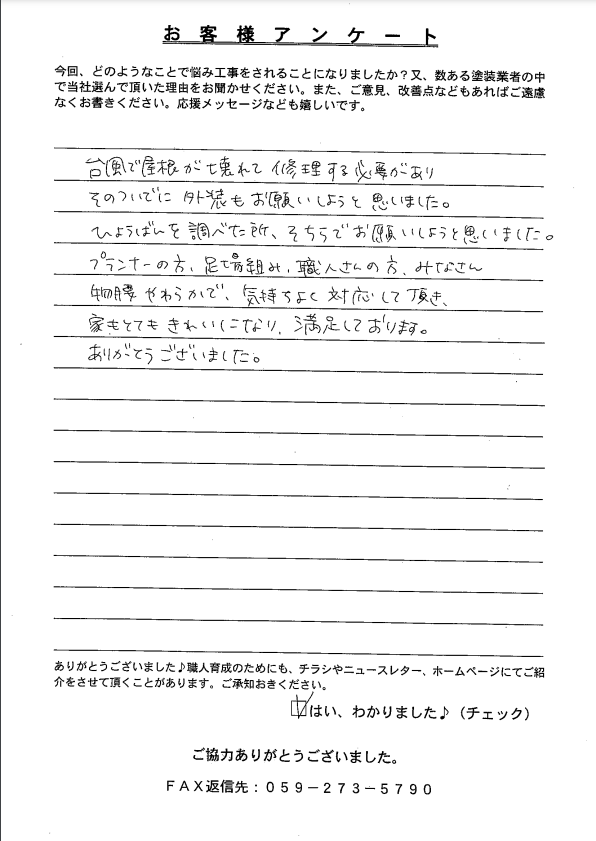 お客様アンケート
今回、どのようなことで悩み工事をされることになりましたか？又、数ある塗装業者の中
で当社選んで頂いた理由をお聞かせください。また、ご意見、改善点などもあればご遠慮
なくお書きください。応援メッセージなども嬉しいです。
台風で屋根が壊れて修理する必要があり
そのついでに外装もお願いしようと思いました。
ひょうばんを調べた所、そちらでお願いしようと思いました。
プランナーの方、足場組み、職人さんの方、みなさん
物腰やわらかで、気持ちよく対応して頂き、
家もとてもきれいになり、満足しております。
ありがとうございました。
ありがとうございました♪職人育成のためにも、チラシやニュースレター、ホームページにてご紹
介をさせて頂くことがあります。ご承知おきください。
はい、わかりました♪（チェック）
ご協力ありがとうございました。
ＦＡＸ返信先：０５９－２７３－５７９０